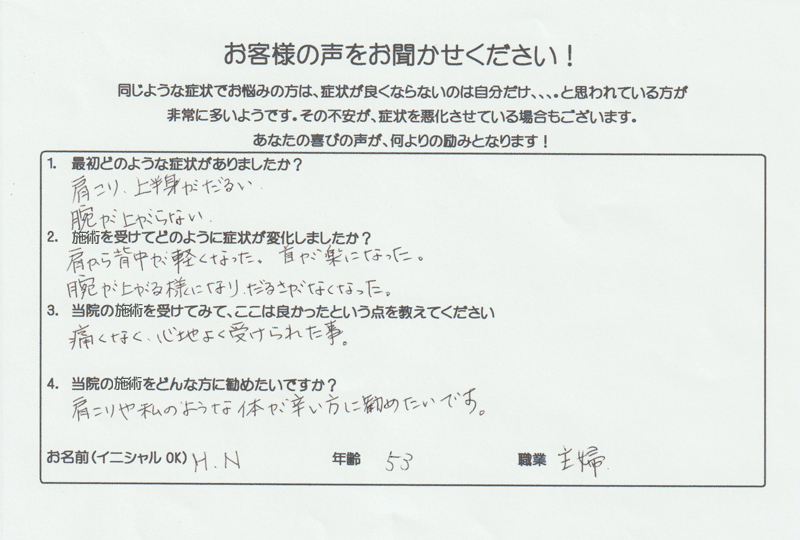 お客様の声をお聞かせください！
同じような症状でお悩みの方は、症状が良くならないのは自分だけ、、、。と思われている方が
非常に多いようです。その不安が、症状を悪化させている場合もございます。
あなたの喜びの声が、何よりの励みとなります！
1. 最初どのような症状がありましたか？
肩こり、上半身がだるい、
腕が上がらない、
2. 施術を受けてどのように症状が変化しましたか？
肩から背中が軽くなった。首が楽になった。
腕が上がる様になり、だるさがなくなった。
3. 当院の施術を受けてみて、ここは良かったという点を教えてください
痛くなく、心地よく受けられた事。
4. 当院の施術をどんな方に勧めたいですか？
肩こりや私のような体が辛い方に勧めたいです。
お名前（イニシャルOK） H.N 年齢 53 職業 主婦